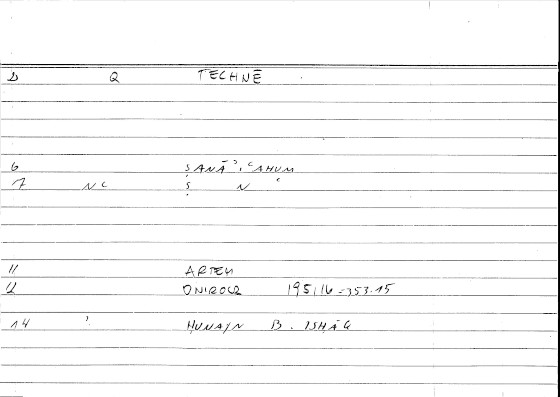 D Q TECHNĒ
6 ṢANĀʾIʿAHUM
7 NC Ṣ N ʿ
11 ARTEM
12 ONIROCR 195,16=353.15
14 ʾ ḤUNAYN B. ISḤĀQ